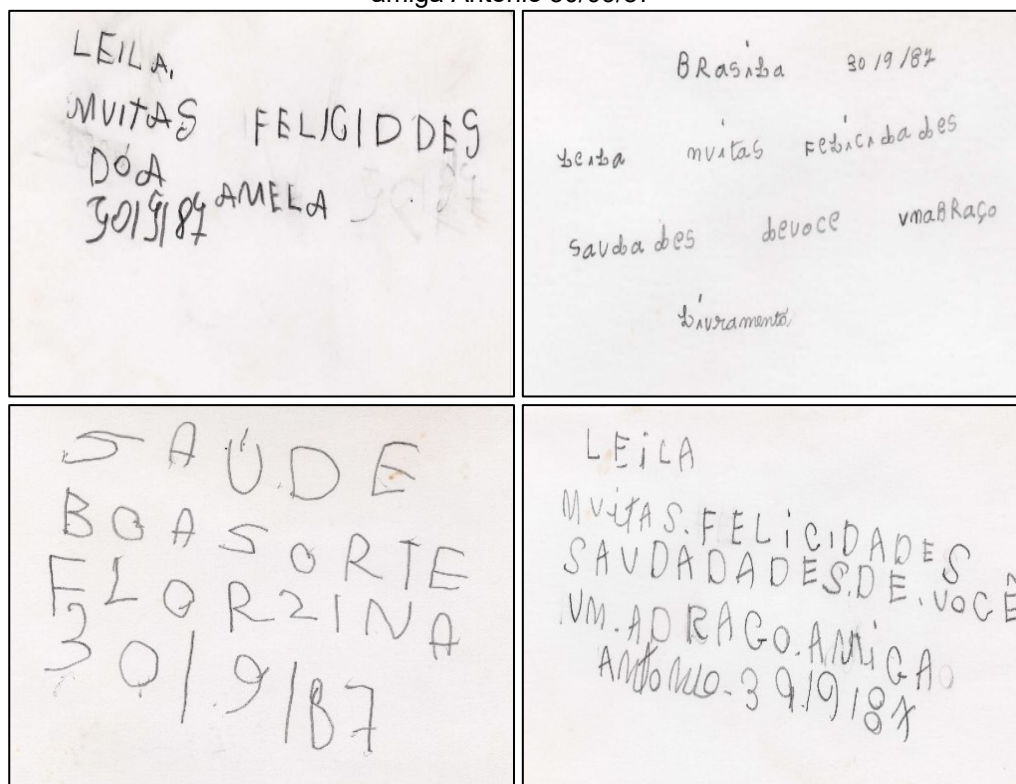 amiga Antonio 30/09/87
LEILA.
MUITAS FELICIDDES
DÓA
30/9/87 AMELA
BRasilia 30/9/87
Leila muitas FeLicidades
Saudades devoce umaBRaço
Livramento
SAÚ.DE
BOA SORTE
FLORZINA
30/.9/87
LEiLA
MUiTAS.FELiCIDADES
SAUDADADES.DE.VOCÊ
UM.ADRAGO.AMiGA
ANTONIO-39/9/87